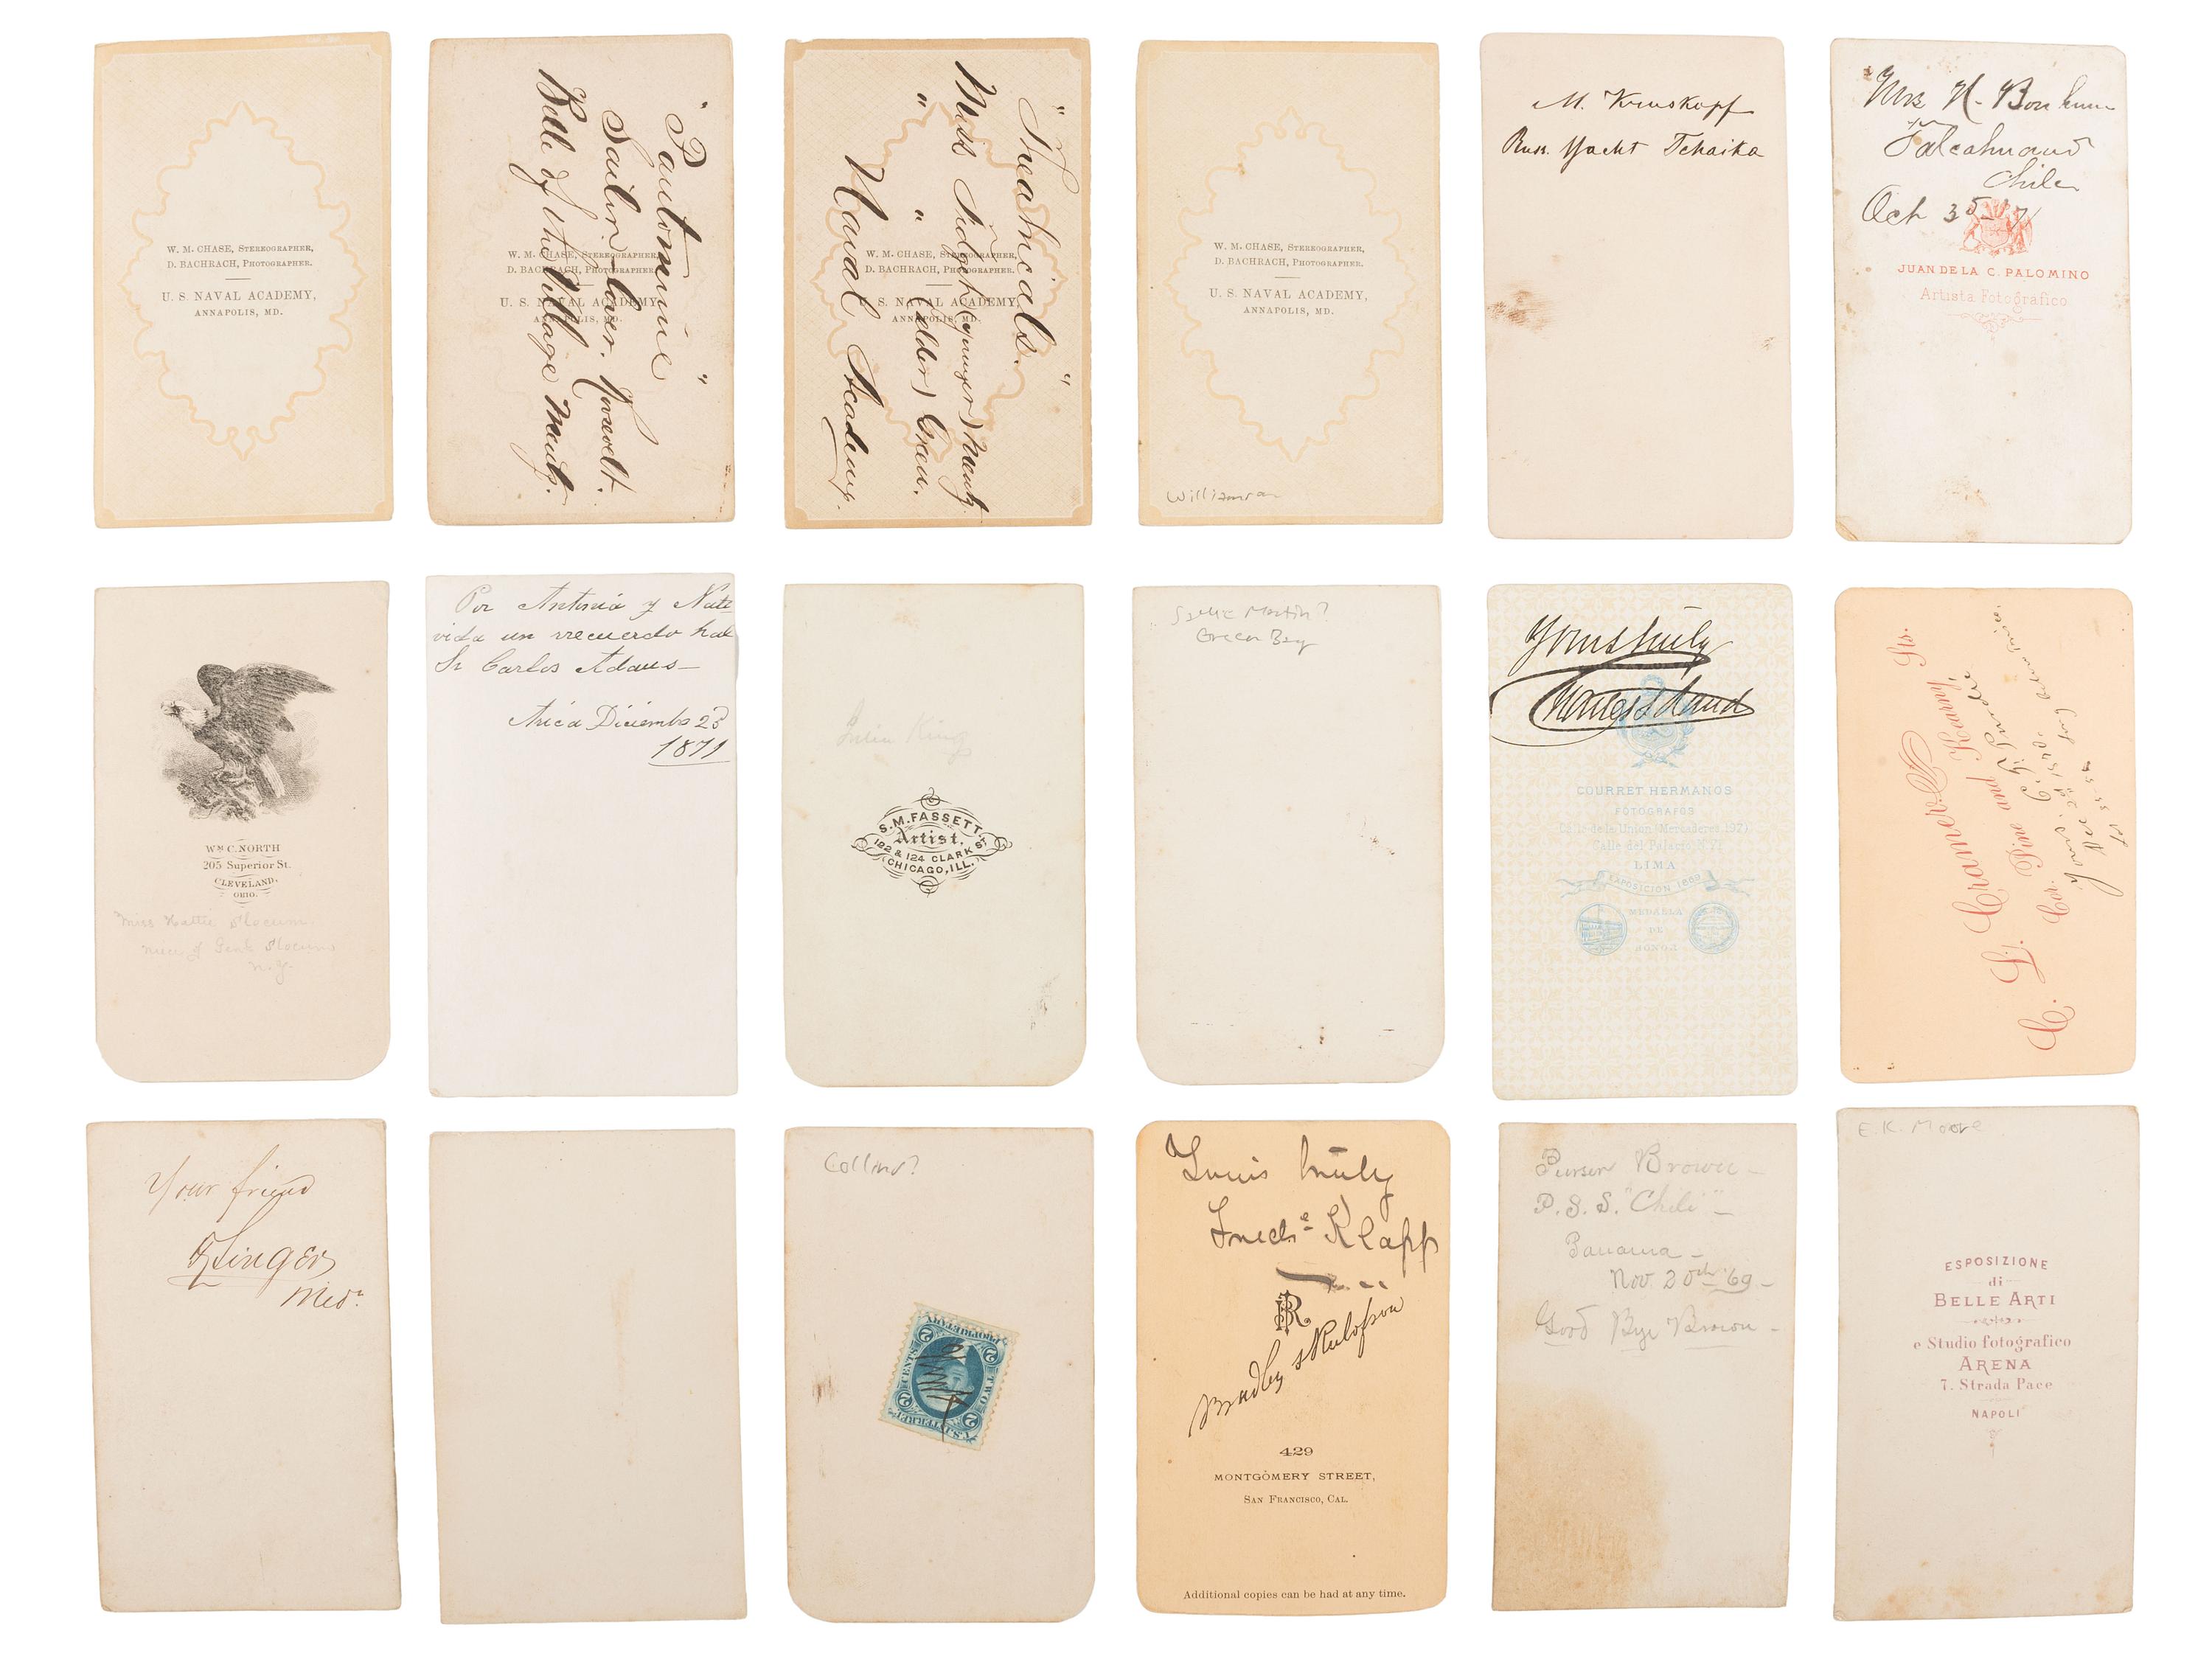 W. M. CHASE, STEREOGRAPHER,
D. BACHRACH, PHOTOGRAPHER.
U. S. NAVAL ACADEMY,
ANNAPOLIS, MD.
"Pantomime"
Sailor Lover. Roosevelt.
Belle of the Village
W. M. CHASE, STEREOGRAPHER,
D. BACHRACH, PHOTOGRAPHER.
U. S. NAVAL ACADEMY,
ANNAPOLIS, MD.
"Theatricals."
Miss (younger)
" " (elder) Green.
Naval Academy.
W. M. CHASE, STEREOGRAPHER,
D. BACHRACH, PHOTOGRAPHER.
U. S. NAVAL ACADEMY,
ANNAPOLIS, MD.
W. M. CHASE, STEREOGRAPHER,
D. BACHRACH, PHOTOGRAPHER.
U. S. NAVAL ACADEMY,
ANNAPOLIS, MD.
Williamson
M. Kruskopf
Russ. Yacht Tchaika
Mrs H.
Talcahuano
Chile
Oct
JUAN DE LA C. PALOMINO
Artista Fotógrafico
WM C. NORTH
205 Superior St.
CLEVELAND,
OHIO.
Miss Hattie Slocum
niece of Genl Slocum
N.Y.
Por Antonia y Nati
vida un recuerdo hal
Sr Carlos Adams
Arica Diciembe 23
1871
Julia King
S. M. FASSETT,
Artist.
122 & 124 CLARK ST
CHICAGO, ILL.
Sallie Martin?
Green Bay
Yours truly
COURRET HERMANOS
FOTOGRAFOS
Calle de la Union (Mercaderes 197)
Calle del Palacio
LIMA
EXPOSICION 1869
MEDALLA
DE
HONOR
C. L. Cramer
Cor. Pine and Kearny Sts.
Your friend
Singer
Mido.
Collins?
U.S. INTER. REV.
TWO CENTS
PROPRIETARY
2 2 2 2
Yours truly
Fredk Klapp
BR
Bradley & Rulofson
429
MONTGOMERY STREET,
SAN FRANCISCO, CAL.
Additional copies can be had at any time.
Purser Brown -
P.S.S. "Chile" -
Panama -
Nov. 20th '69 -
Good Bye Brown -
E.K. Moore
ESPOSIZIONE
di
BELLE ARTI
e Studio fotografico
ARENA
7. Strada Pace
NAPOLI